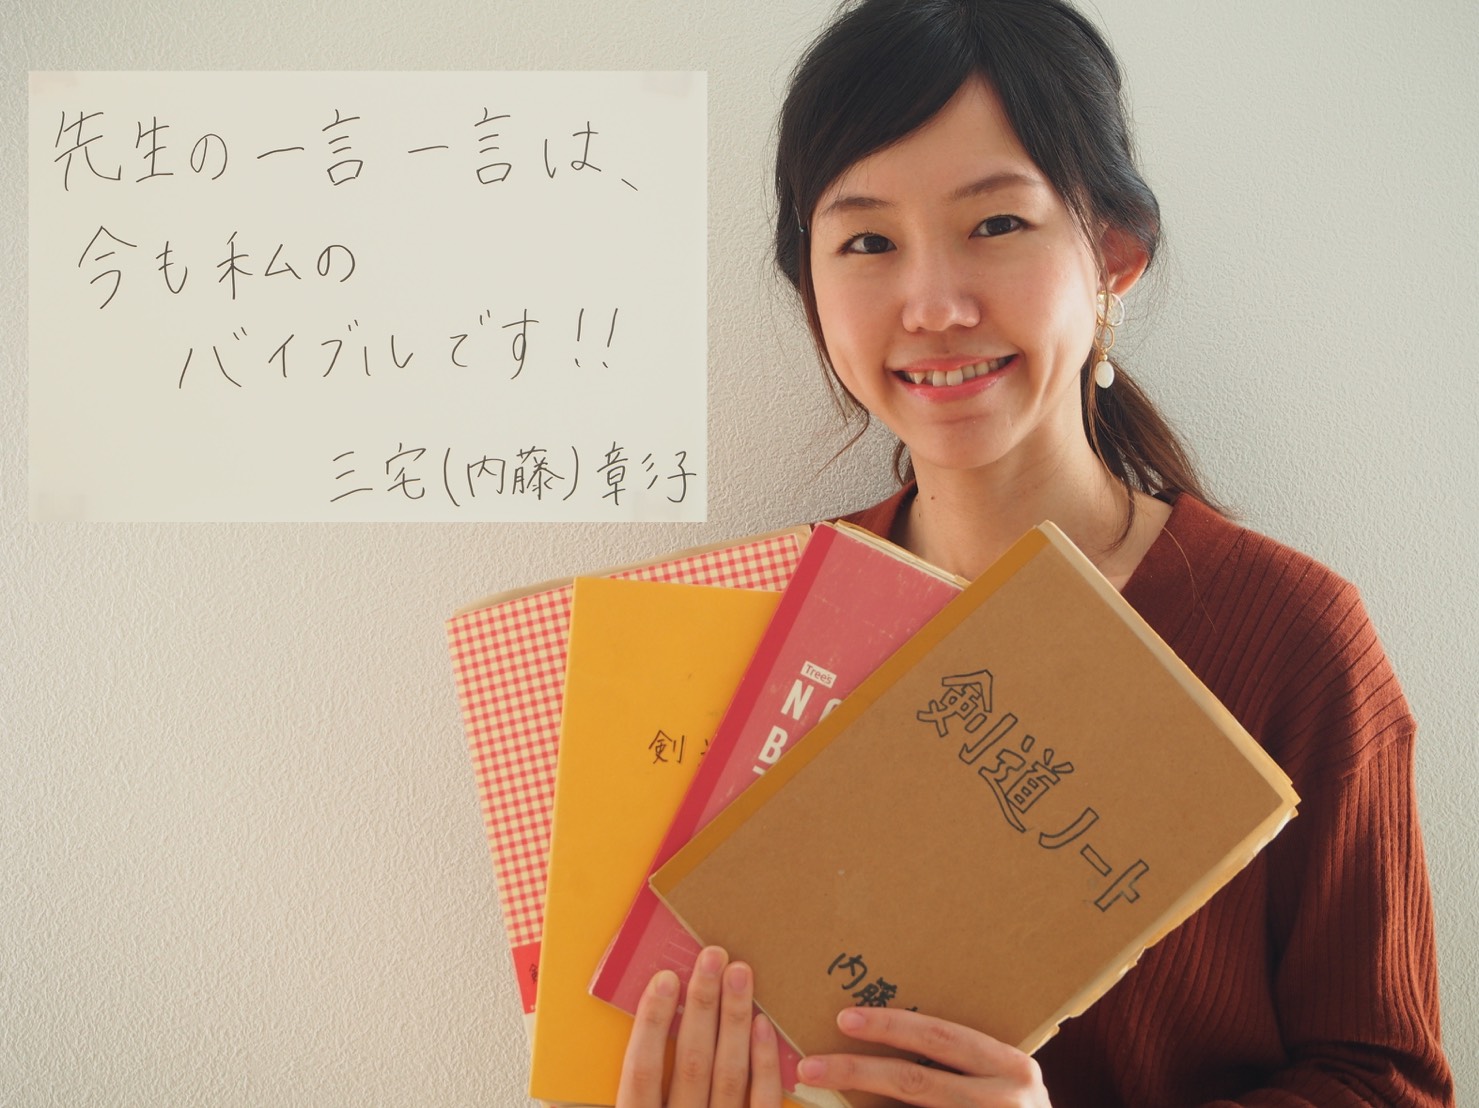 先生の一言一言は、
今も私の
バイブルです!!
三宅(内藤)章子
剣
Tree's
N
B
剣道ノート
内藤